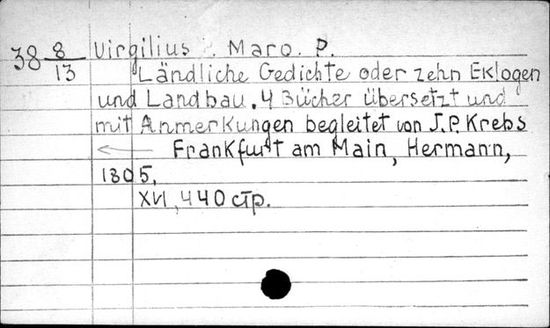 38 8/13 Virgilius Maro. P.
Ländliche Gedichte oder zehn Eklogen
und Landbau. 4 Bücher übersetzt und
mit Anmerkungen begleitet von J.P. Krebs
Frankfurt am Main, Hermann,
1805.
XVI, 440 стр.